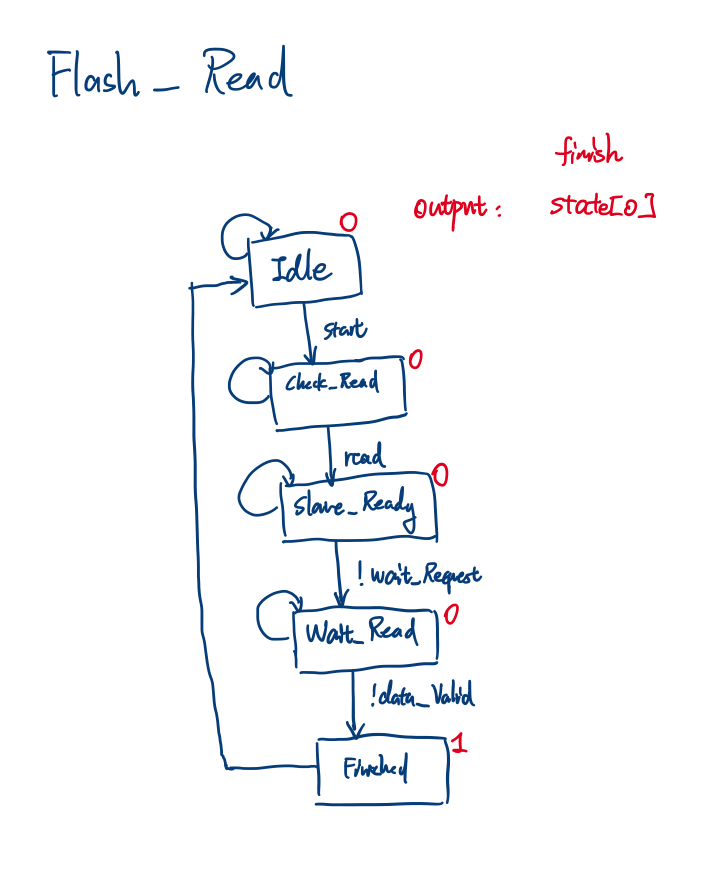 Flash_Read
finish
output: state[0]
0
Idle
start
0
Check_Read
read
0
Slave_Ready
!wait_Request
0
Wait_Read
!data_Valid
1
Finished